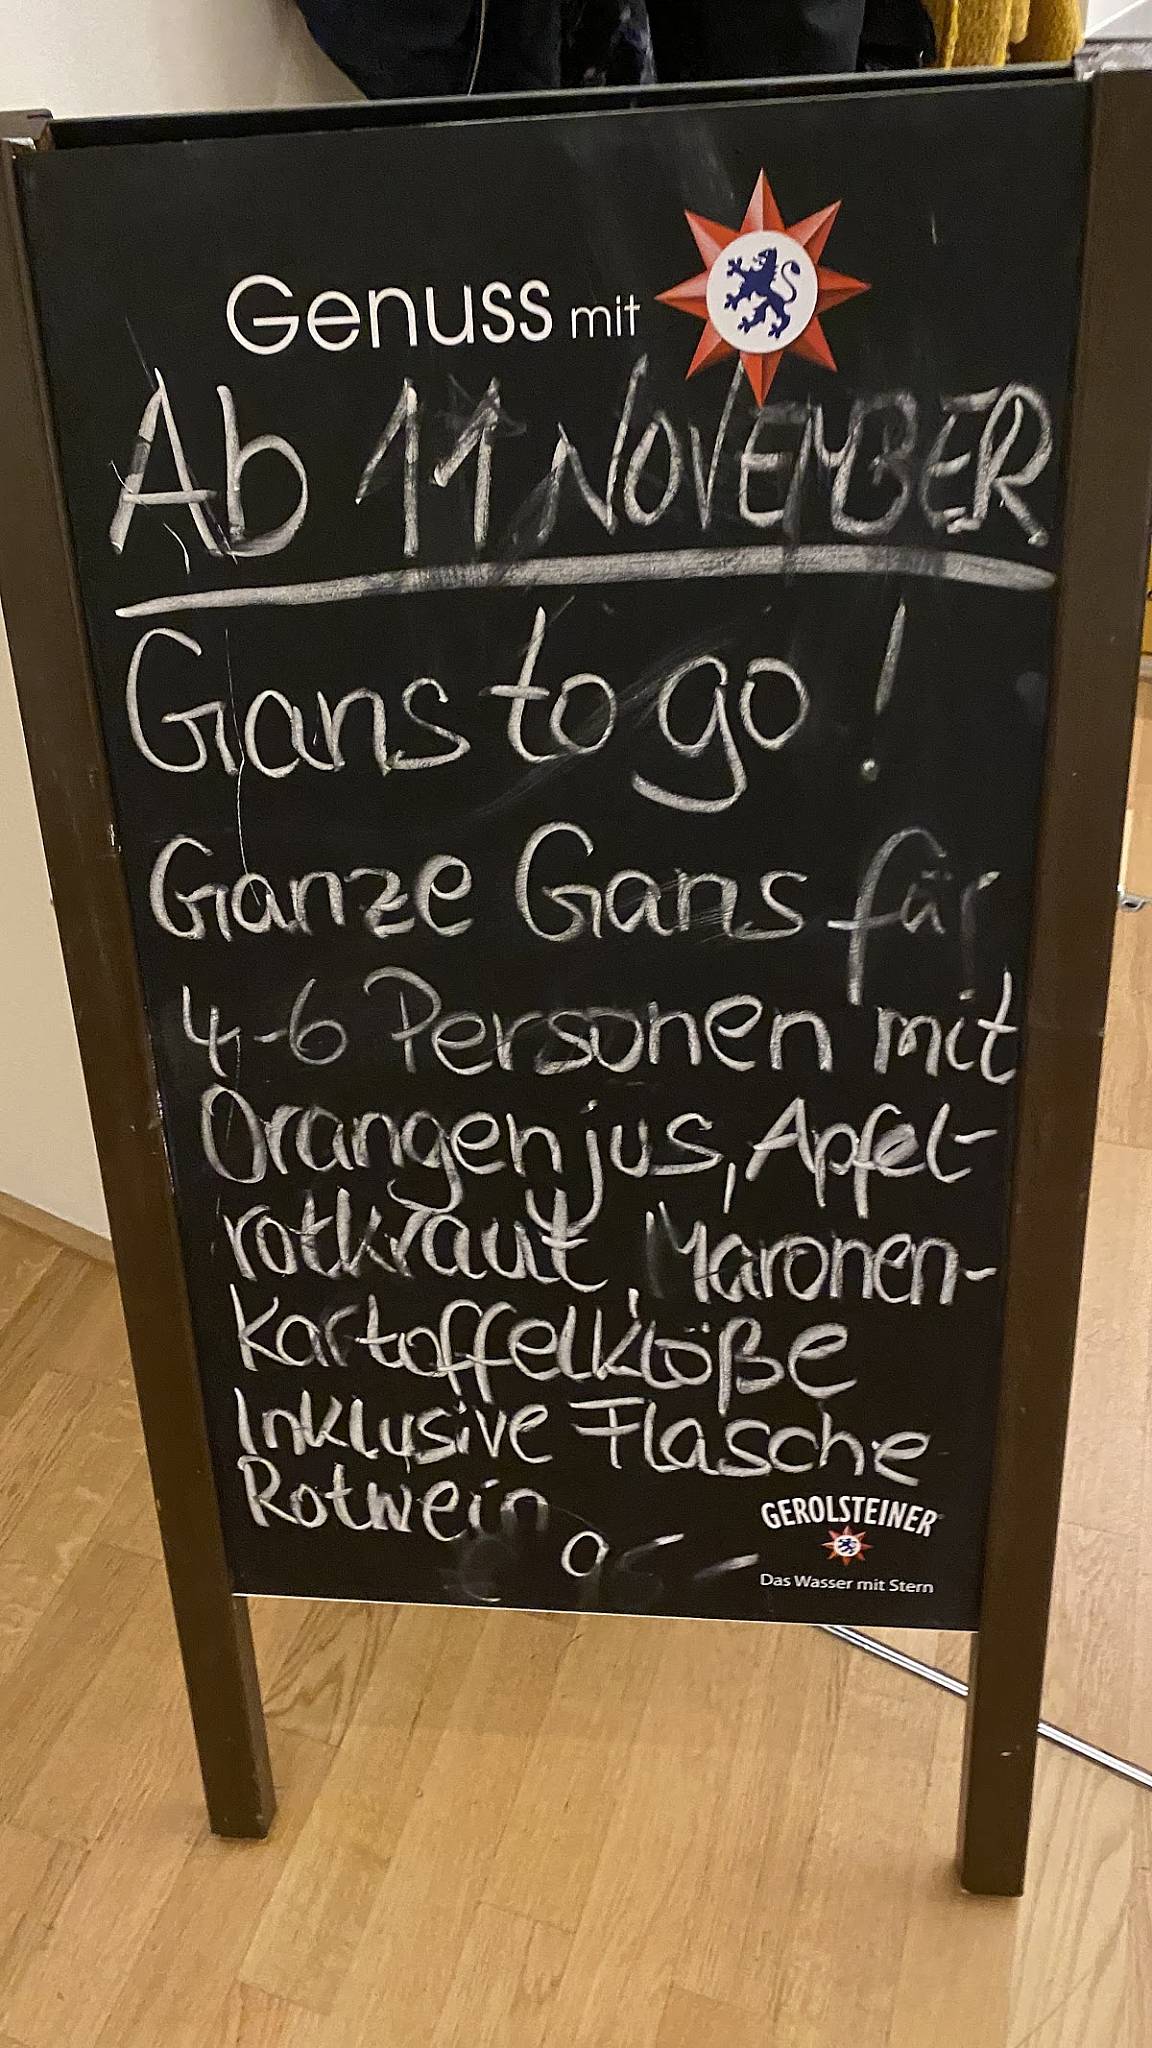 Genuss mit
Ab 11 NOVEMBER
Gans to go!
Ganze Gans für
4-6 Personen mit
Orangenjus, Apfel-
rotkraut, Maronen-
kartoffelklöße
Inklusive Flasche
Rotwein
€ 95 -
GEROLSTEINER
Das Wasser mit Stern